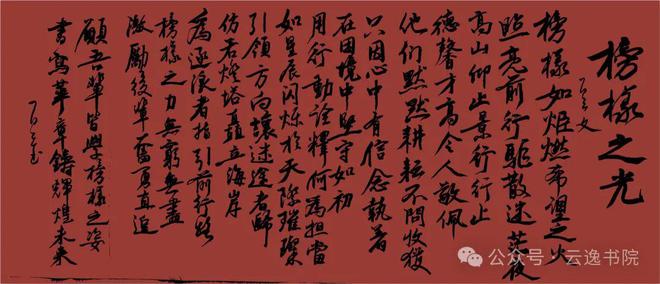 榜樣之光
榜樣如炬燃希望之火
照亮前行驅散迷茫夜
高山仰止景行行止
德馨才高令人敬佩
他们默默耕耘不問收獲
只因心中有信念執著
在困境中堅守如初
用行動詮釋何為担當
如星辰闪烁於天際璀璨
引領方向讓迷途者歸
仿若燈塔矗立海岸
為逐浪者指引前行路
榜樣之力無窮無盡
激勵後輩奮勇直追
願吾輩皆學榜樣之姿
書寫華章鑄輝煌未來
公众号 · 云逸书院